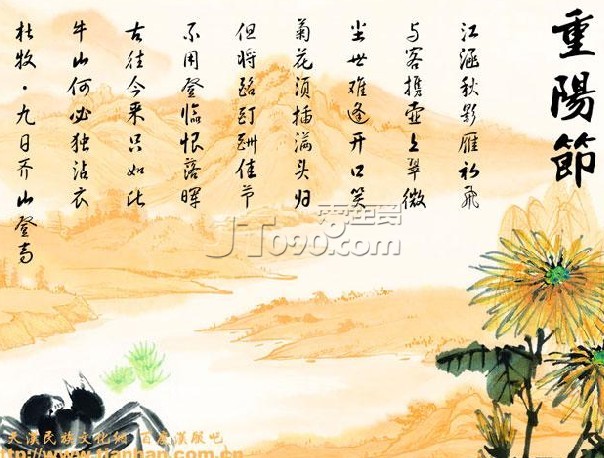 重陽節
江涵秋影雁初飞
与客携壶上翠微
尘世难逢开口笑
菊花须插满头归
但将酩酊酬佳节
不用登临恨落晖
古往今来只如此
牛山何必独沾衣
杜牧·九日齐山登高
JT090.com
天漢民族文化網 百度漢服吧
http://www.tianhan.com.cn